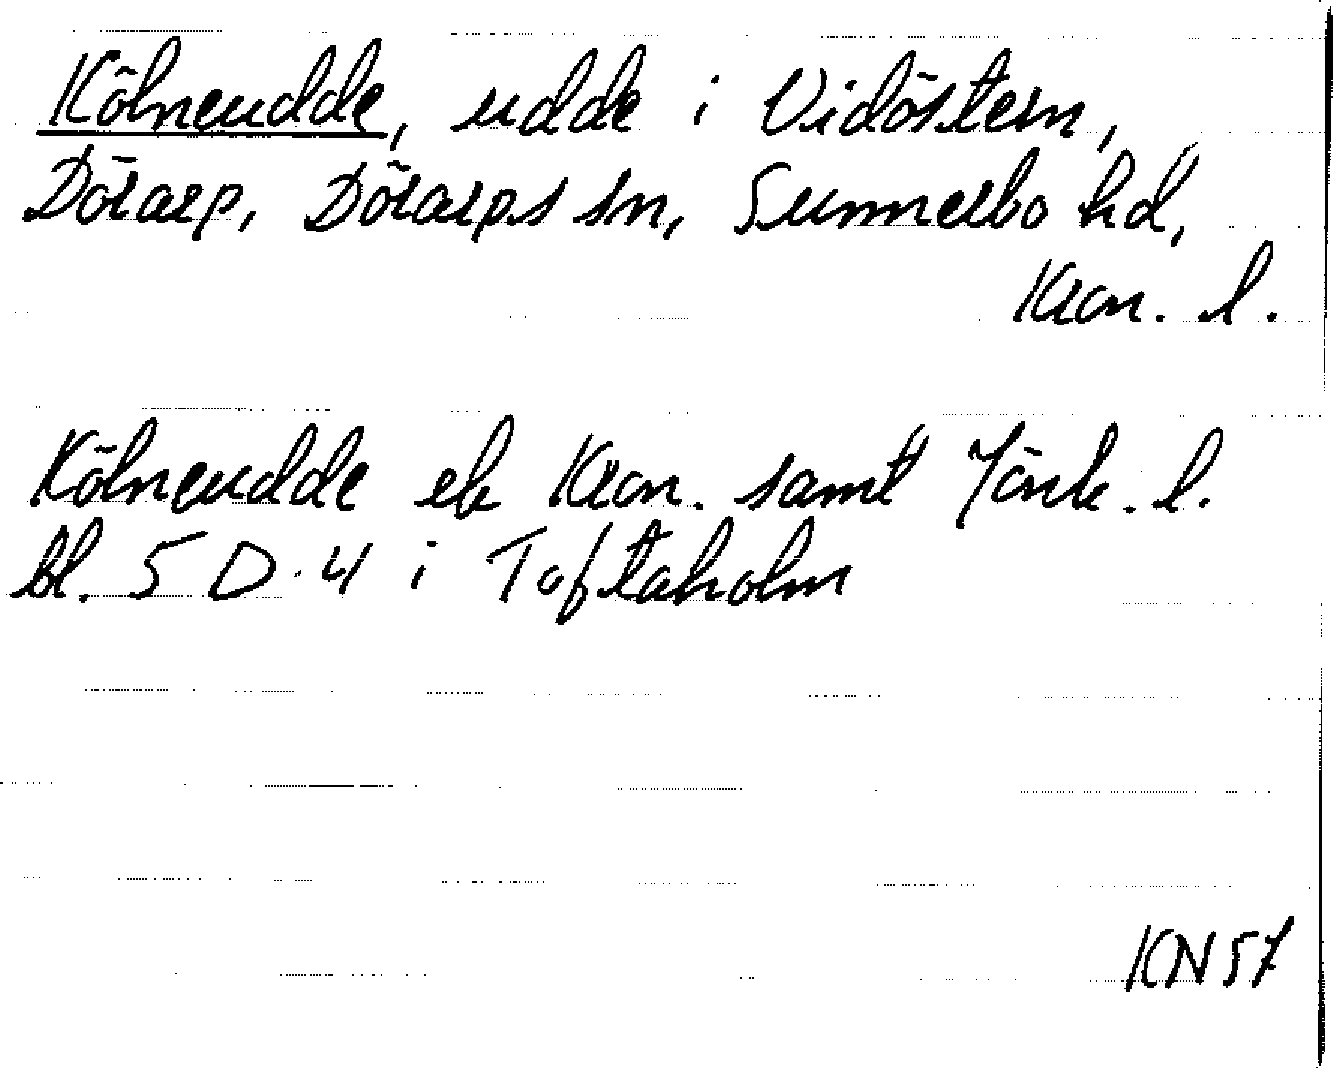 Kölneudde, udde i Vidöstern,
Dörarp, Dörarps sn, Sunnerbo hd,
Kron. l.
Kölneudde ek Kron. samt Jönk. l.
bl. 5 D. 4 i Toftaholm
KN 57